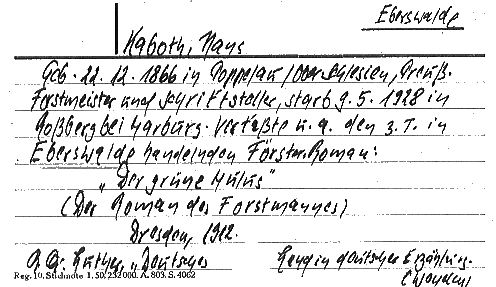 Eberswalde
Kaboth, Hans
Geb. 22. 12. 1866 in Poppelau/Oberschlesien, Preuß.
Forstmeister und Schriftsteller, starb 9. 5. 1928 in
Roßberg bei Marburg. Verfaßte u. a. den z. T. in
Eberswalde handelnden Förster-Roman:
"Der grüne
(Der Roman des Forstmannes)
Dresden, 1912.
Luther, "Deutsches
in deutscher Erzählung.
Reg. 10. Stichnote 1. 50. 232 000. A. 803. S. 4062